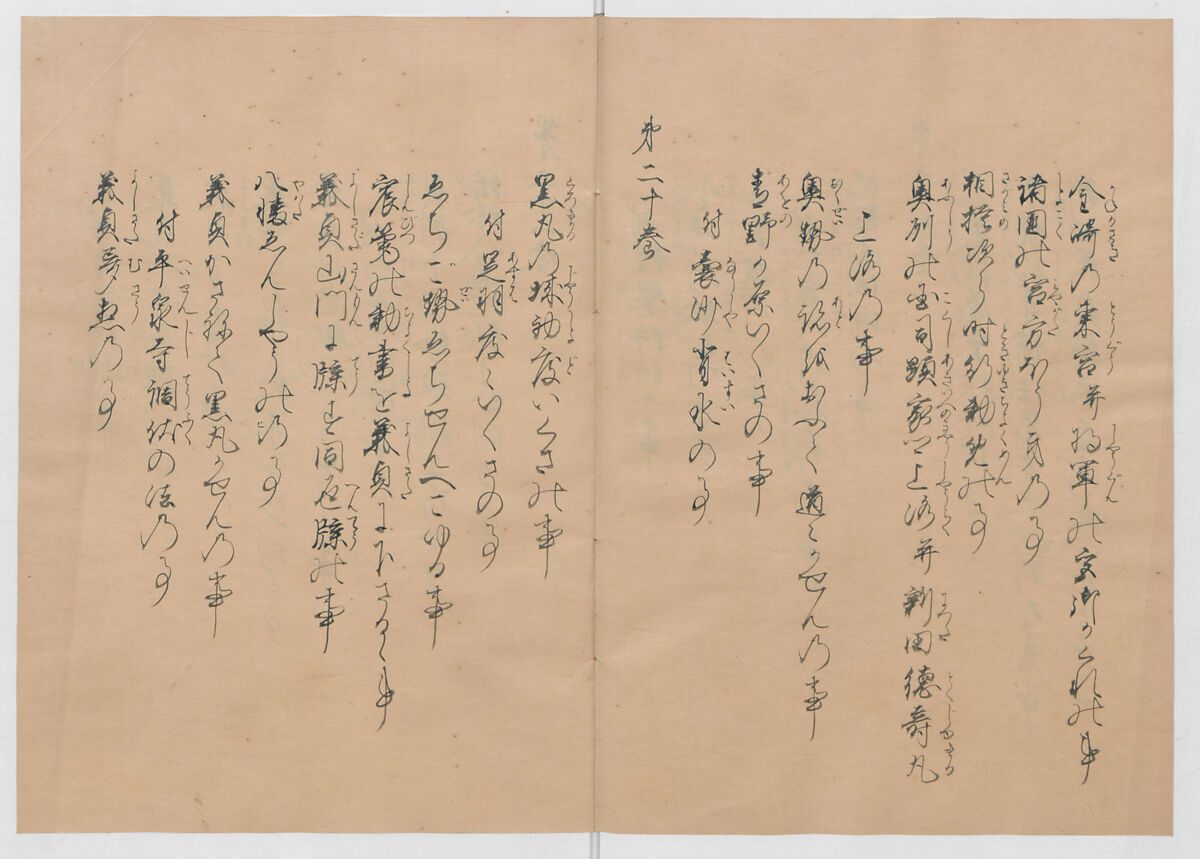 金崎の東宮并将軍の宮御かくれの事
諸国の宮方おこる事の事
相模次郎時行勅免の事
奥州の国司顕家卿上洛并新田徳寿丸
上洛の事
奥勢の跡をおふて道々かせんの事
青野か原いくさの事
付嚢沙背水の事
第二十巻
黒丸の城初度いくさの事
付足羽度々いくさの事
ゑちご勢ゑちぜんへこゆる事
宸筆の勅書を義貞に下さるゝ事
義貞山門に牒す同返牒の事
八幡ゑんしやうの事
義貞かさねて黒丸かせんの事
付平泉寺調伏の法の事
義貞夢想の事